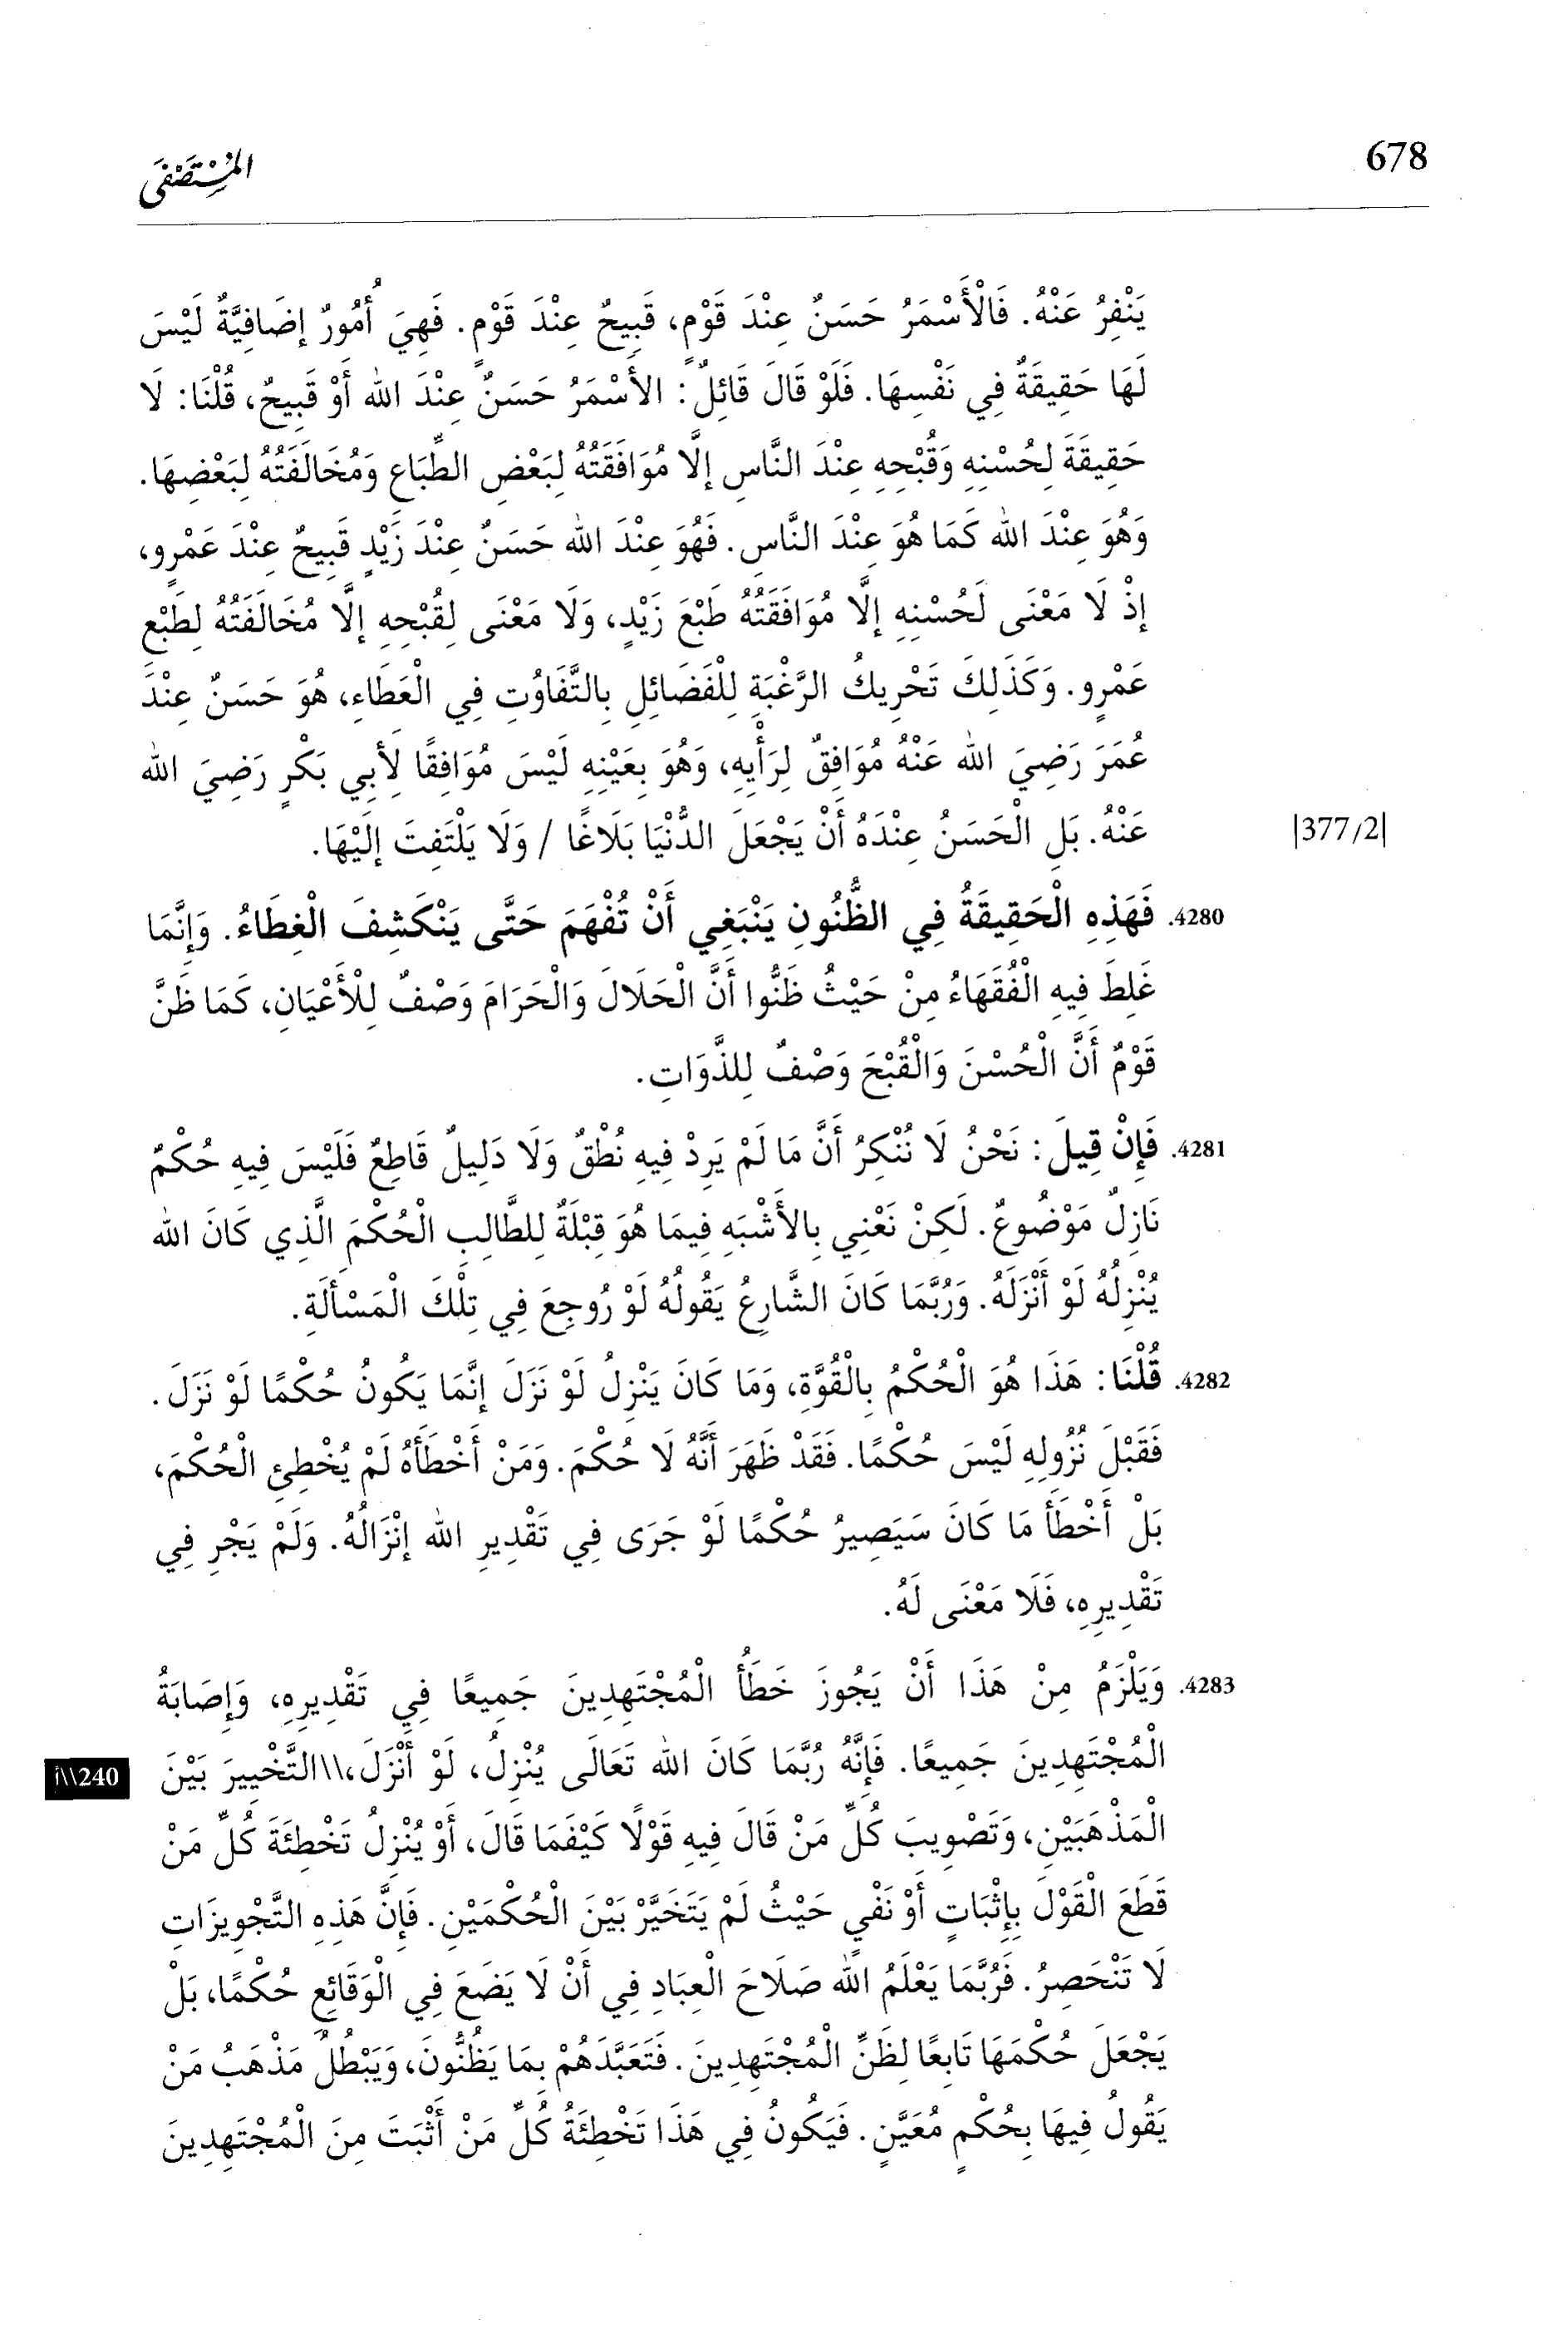 678
المُسْتَصْفَى
يَنْفِرُ عَنْهُ. فَالْأَسْمَرُ حَسَنٌ عِنْدَ قَوْمٍ، قَبِيحٌ عِنْدَ قَوْمٍ. فَهِيَ أُمُورٌ إِضَافِيَّةٌ لَيْسَ
لَهَا حَقِيقَةٌ فِي نَفْسِهَا. فَلَوْ قَالَ قَائِلٌ: الأَسْمَرُ حَسَنٌ عِنْدَ الله أَوْ قَبِيحٌ، قُلْنَا: لَا
حَقِيقَةَ لِحُسْنِهِ وَقُبْحِهِ عِنْدَ النَّاسِ إِلَّا مُوَافَقَتُهُ لِبَعْضِ الطِّبَاعِ وَمُخَالَفَتُهُ لِبَعْضِهَا.
وَهُوَ عِنْدَ الله كَمَا هُوَ عِنْدَ النَّاسِ. فَهُوَ عِنْدَ الله حَسَنٌ عِنْدَ زَيْدٍ قَبِيحٌ عِنْدَ عَمْرٍو،
إِذْ لَا مَعْنَى لَحُسْنِهِ إِلَّا مُوَافَقَتُهُ طَبْعَ زَيْدٍ، وَلَا مَعْنَى لِقُبْحِهِ إِلَّا مُخَالَفَتُهُ لِطَبْعِ
عَمْرٍو. وَكَذَلِكَ تَحْرِيكُ الرَّغْبَةِ لِلْفَضَائِلِ بِالتَّفَاوُتِ فِي الْعَطَاءِ، هُوَ حَسَنٌ عِنْدَ
عُمَرَ رَضِيَ الله عَنْهُ مُوَافِقٌ لِرَأْيِهِ، وَهُوَ بِعَيْنِهِ لَيْسَ مُوَافِقًا لِأَبِي بَكْرٍ رَضِيَ الله
عَنْهُ. بَلِ الْحَسَنُ عِنْدَهُ أَنْ يَجْعَلَ الدُّنْيَا بَلَاغًا / وَلَا يَلْتَفِتَ إِلَيْهَا.
|377/2|
4280. فَهَذِهِ الْحَقِيقَةُ فِي الظُّنُونِ يَنْبَغِي أَنْ تُفْهَمَ حَتَّى يَنْكَشِفَ الْغِطَاءُ. وَإِنَّمَا
غَلِطَ فِيهِ الْفُقَهَاءُ مِنْ حَيْثُ ظَنُّوا أَنَّ الْحَلَالَ وَالْحَرَامَ وَصْفٌ لِلْأَعْيَانِ، كَمَا ظَنَّ
قَوْمٌ أَنَّ الْحُسْنَ وَالْقُبْحَ وَصْفٌ لِلذَّوَاتِ.
4281. فَإِنْ قِيلَ: نَحْنُ لَا نُنْكِرُ أَنَّ مَا لَمْ يَرِدْ فِيهِ نُطْقٌ وَلَا دَلِيلٌ قَاطِعٌ فَلَيْسَ فِيهِ حُكْمٌ
نَازِلٌ مَوْضُوعٌ. لَكِنْ نَعْنِي بِالأَشْبَهِ فِيمَا هُوَ قِبْلَةٌ لِلطَّالِبِ الْحُكْمَ الَّذِي كَانَ الله
يُنْزِلُهُ لَوْ أَنْزَلَهُ. وَرُبَّمَا كَانَ الشَّارِعُ يَقُولُهُ لَوْ رُوجِعَ فِي تِلْكَ الْمَسْأَلَةِ.
4282. قُلْنَا: هَذَا هُوَ الْحُكْمُ بِالْقُوَّةِ، وَمَا كَانَ يَنْزِلُ لَوْ نَزَلَ إِنَّمَا يَكُونُ حُكْمًا لَوْ نَزَلَ.
فَقَبْلَ نُزُولِهِ لَيْسَ حُكْمًا. فَقَدْ ظَهَرَ أَنَّهُ لَا حُكْمَ. وَمَنْ أَخْطَأَهُ لَمْ يُخْطِئِ الْحُكْمَ،
بَلْ أَخْطَأَ مَا كَانَ سَيَصِيرُ حُكْمًا لَوْ جَرَى فِي تَقْدِيرِ الله إِنْزَالُهُ. وَلَمْ يَجْرِ فِي
تَقْدِيرِهِ، فَلَا مَعْنَى لَهُ.
4283. وَيَلْزَمُ مِنْ هَذَا أَنْ يَجُوزَ خَطَأُ الْمُجْتَهِدِينَ جَمِيعًا فِي تَقْدِيرِهِ، وَإِصَابَةُ
الْمُجْتَهِدِينَ جَمِيعًا. فَإِنَّهُ رُبَّمَا كَانَ الله تَعَالَى يُنْزِلُ، لَوْ أَنْزَلَ،\\التَّخْيِيرَ بَيْنَ
240\\أ
الْمَذْهَبَيْنِ، وَتَصْوِيبَ كُلِّ مَنْ قَالَ فِيهِ قَوْلًا كَيْفَمَا قَالَ، أَوْ يُنْزِلُ تَخْطِئَةَ كُلِّ مَنْ
قَطَعَ الْقَوْلَ بِإِثْبَاتٍ أَوْ نَفْيٍ حَيْثُ لَمْ يَتَخَيَّرْ بَيْنَ الْحُكْمَيْنِ. فَإِنَّ هَذِهِ التَّجْوِيزَاتِ
لَا تَنْحَصِرُ. فَرُبَّمَا يَعْلَمُ الله صَلَاحَ الْعِبَادِ فِي أَنْ لَا يَضَعَ فِي الْوَقَائِعِ حُكْمًا، بَلْ
يَجْعَلَ حُكْمَهَا تَابِعًا لِظَنِّ الْمُجْتَهِدِينَ. فَتَعَبَّدَهُمْ بِمَا يَظُنُّونَ، وَيَبْطُلُ مَذْهَبُ مَنْ
يَقُولُ فِيهَا بِحُكْمٍ مُعَيَّنٍ. فَيَكُونُ فِي هَذَا تَخْطِئَةُ كُلِّ مَنْ أَثْبَتَ مِنَ الْمُجْتَهِدِينَ